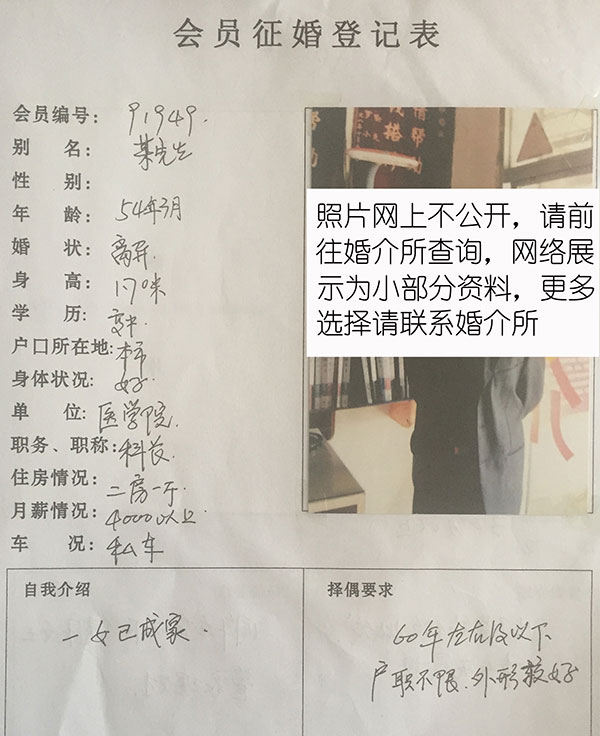 会员征婚登记表
会员编号: 91949.
别 名: 某先生
性 别:
年 龄: 54年3月
婚 状: 离异.
身 高: 1.70米
学 历: 高中.
户口所在地: 本市
身体状况: 好
单 位: 医学院.
职务、职称: 科长.
住房情况: 二房一厅.
月薪情况: 4000以上
车 况: 私车
照片网上不公开，请前
往婚介所查询，网络展
示为小部分资料，更多
选择请联系婚介所
自我介绍
一女已成家.
择偶要求
60年左右及以下
户职不限.外形较好